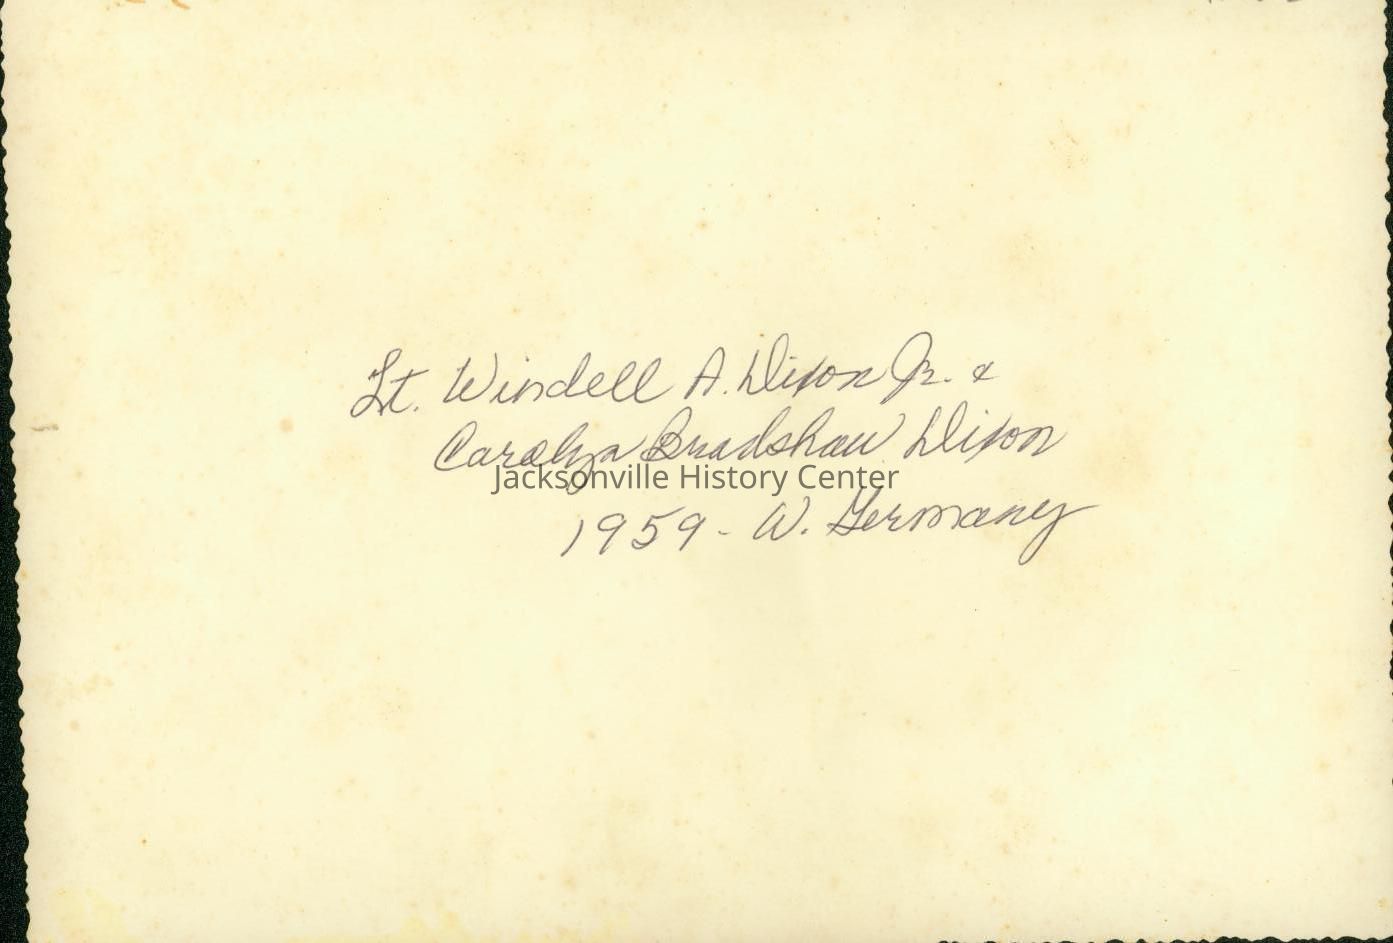 Lt. Windell A. Dixon Jr. &
Carolyn Bradshaw Dixon
Jacksonville History Center
1959 - W. Germany